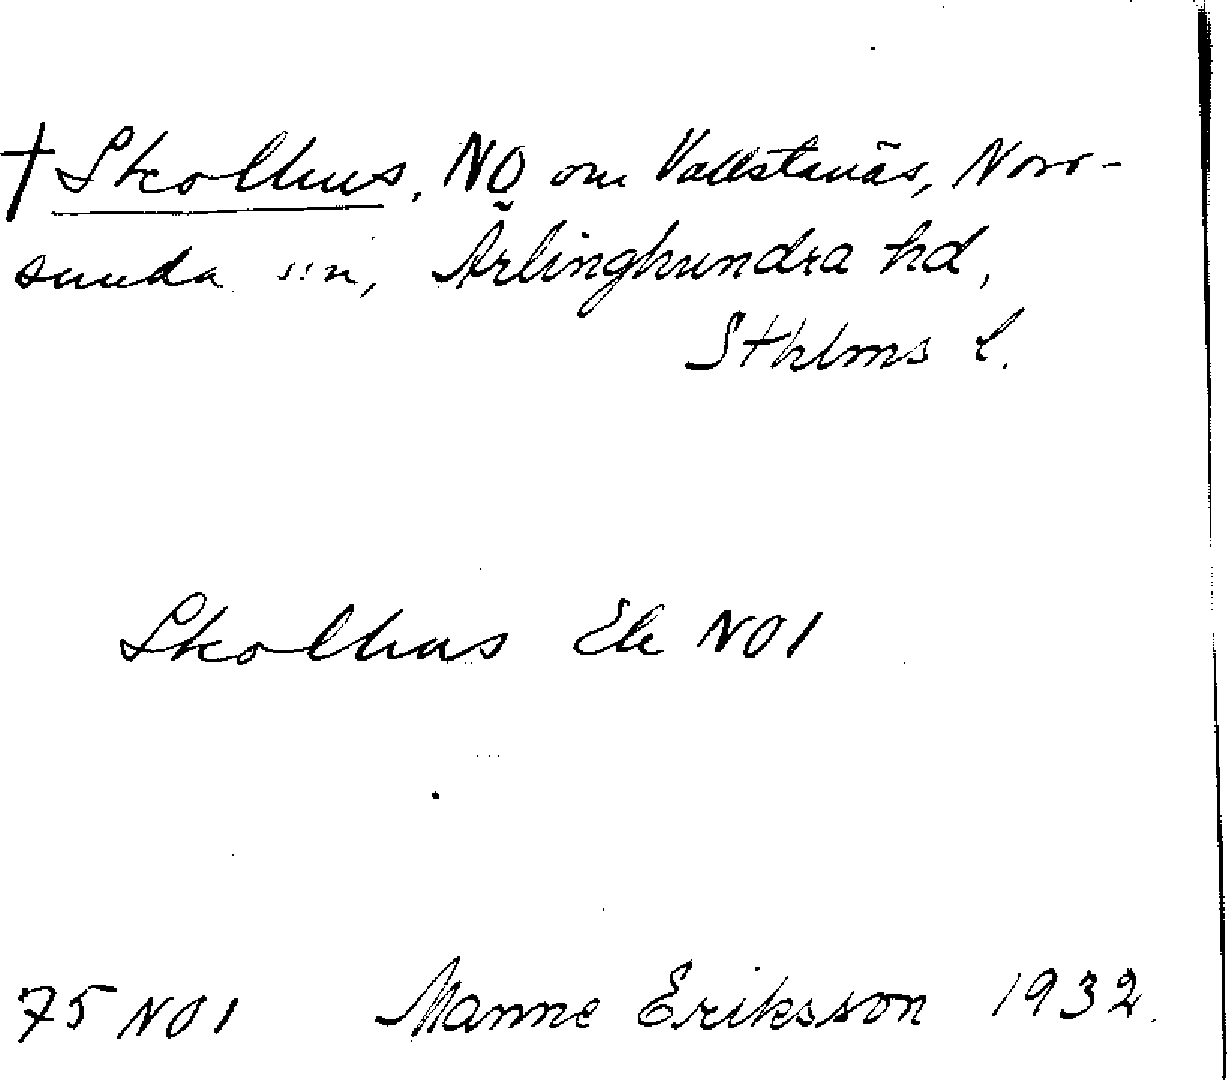 † Skolhus, NO om Vallstanäs, Norr-
sunda sn, Ärlinghundra hd,
Sthlms l.
Skolhus Ek NO1
75 NO1 Manne Eriksson 1932.